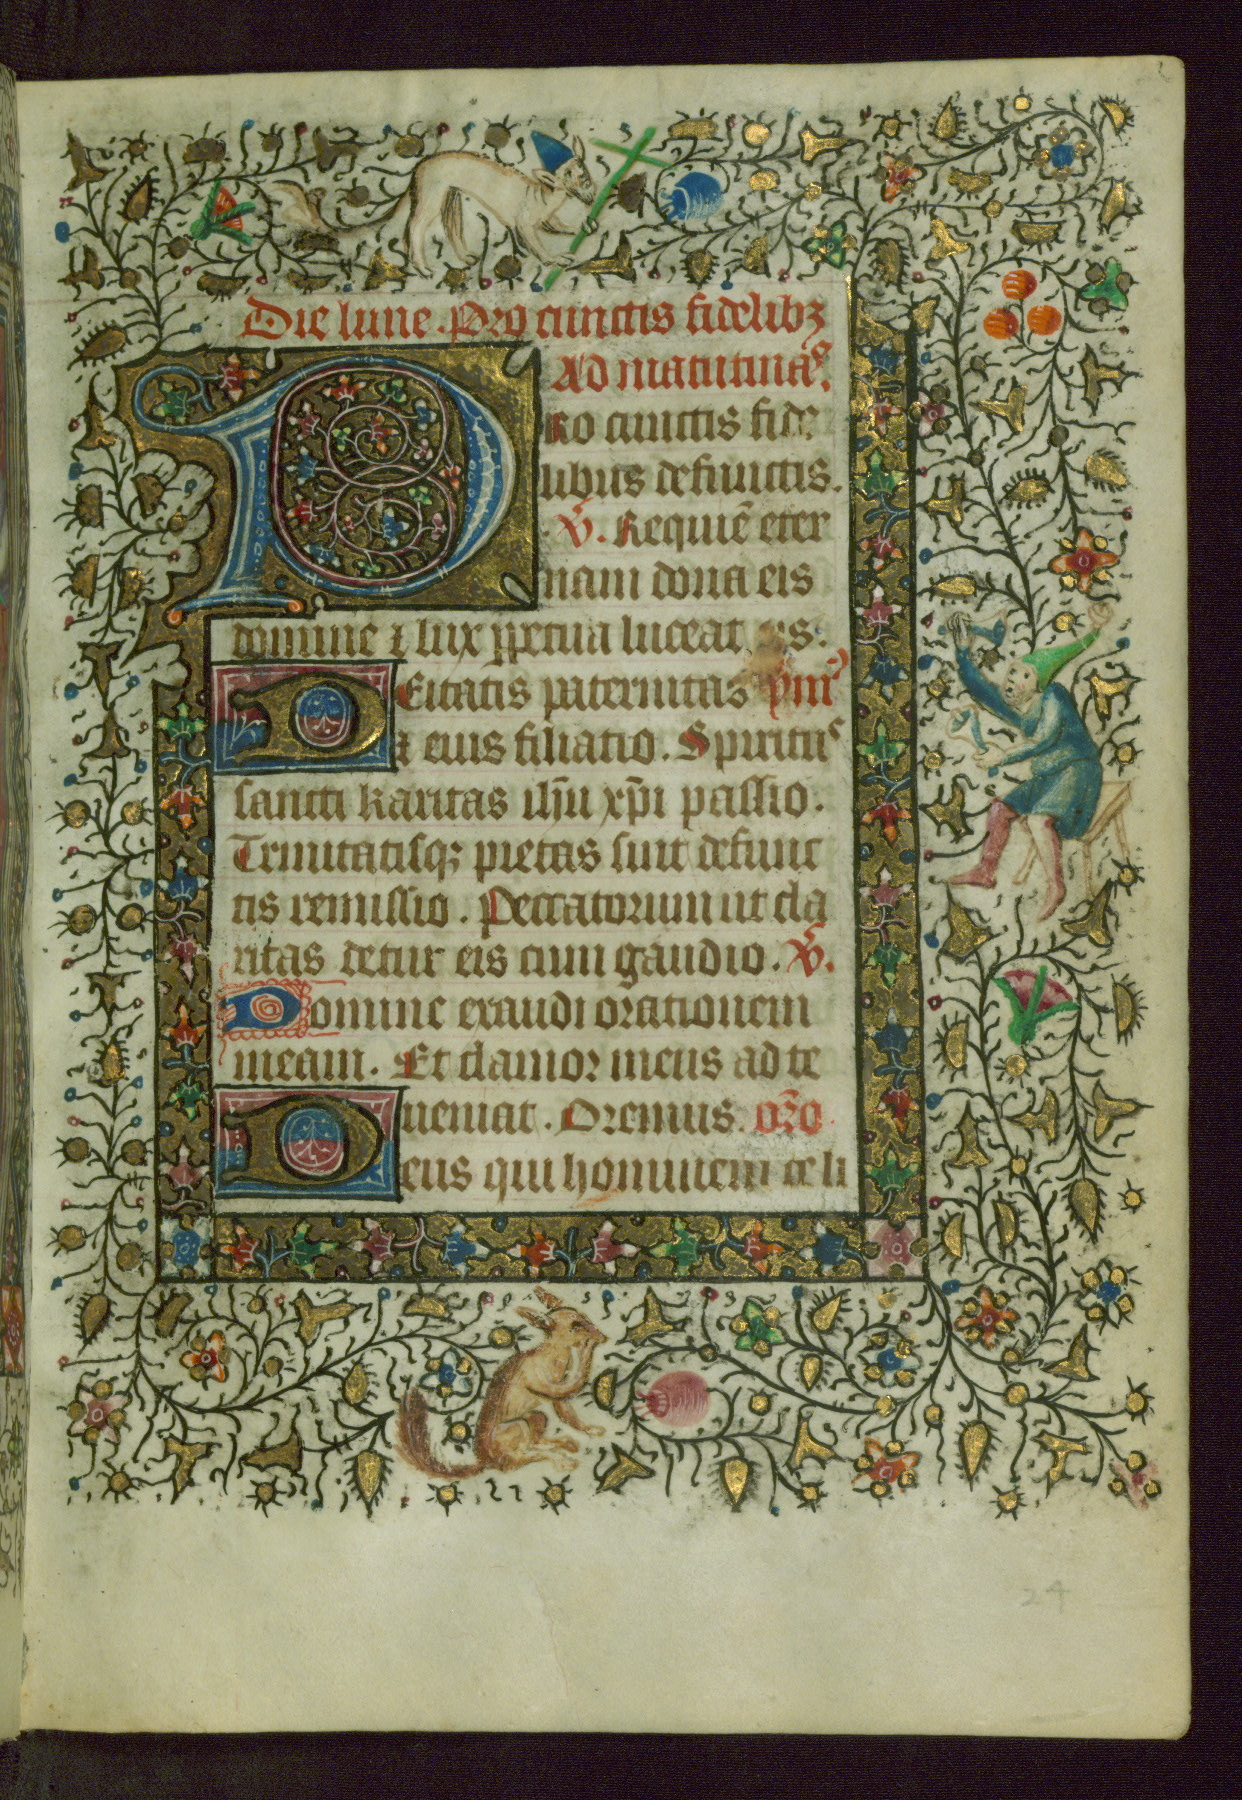 Die lune. Pro cunctis fidelibꝫ
Ad matutinaꝭ.
PRo cunctis fide
libus defunctis.
℣. Requiē eter
nam dona eis
domine ⁊ lux ꝑpetua luceat eis.
DEitatis paternitas ymꝰ
⁊ eius filiatio. Spirituˢ
sancti karitas ihū xp̄i passio.
Trinitatisqꝫ pietas sint defunc
tis remissio. Peccatorum ut cla
ritas detur eis cum gaudio. ℣.
Domine exaudi orationem
meam. Et clamor meus ad te
ueniat. Oremus. or̄o.
Deus qui hominem celi
24